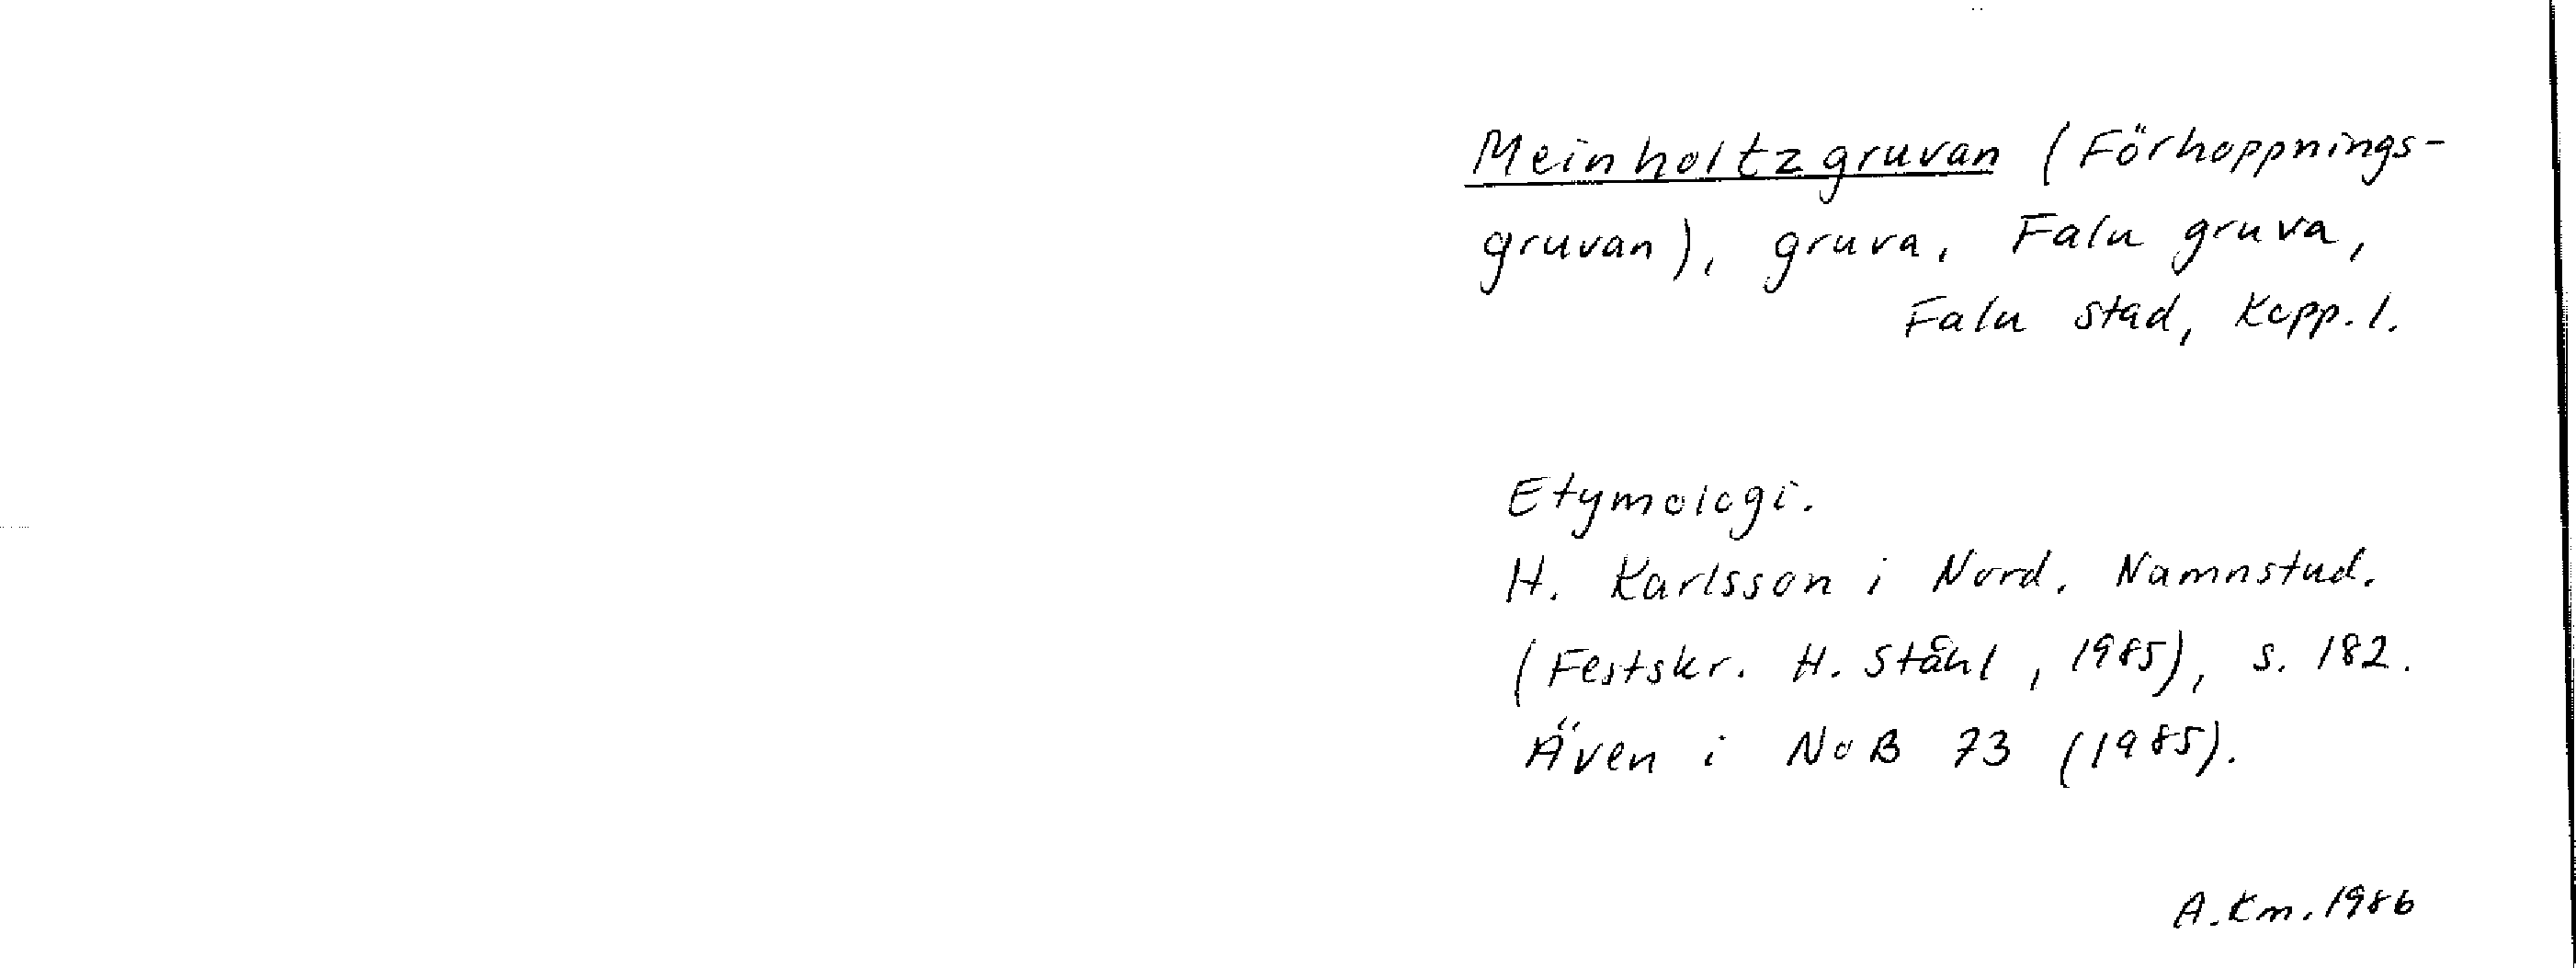 Meinholtzgruvan (Förhoppnings-
gruvan), gruva, Falu gruva,
Falu stad, Kopp. l.
Etymologi.
H. Karlsson i Nord. Namnstud.
(Festskr. H. Ståhl, 1985), s. 182.
Även i NoB 73 (1985).
A. Km. 1986